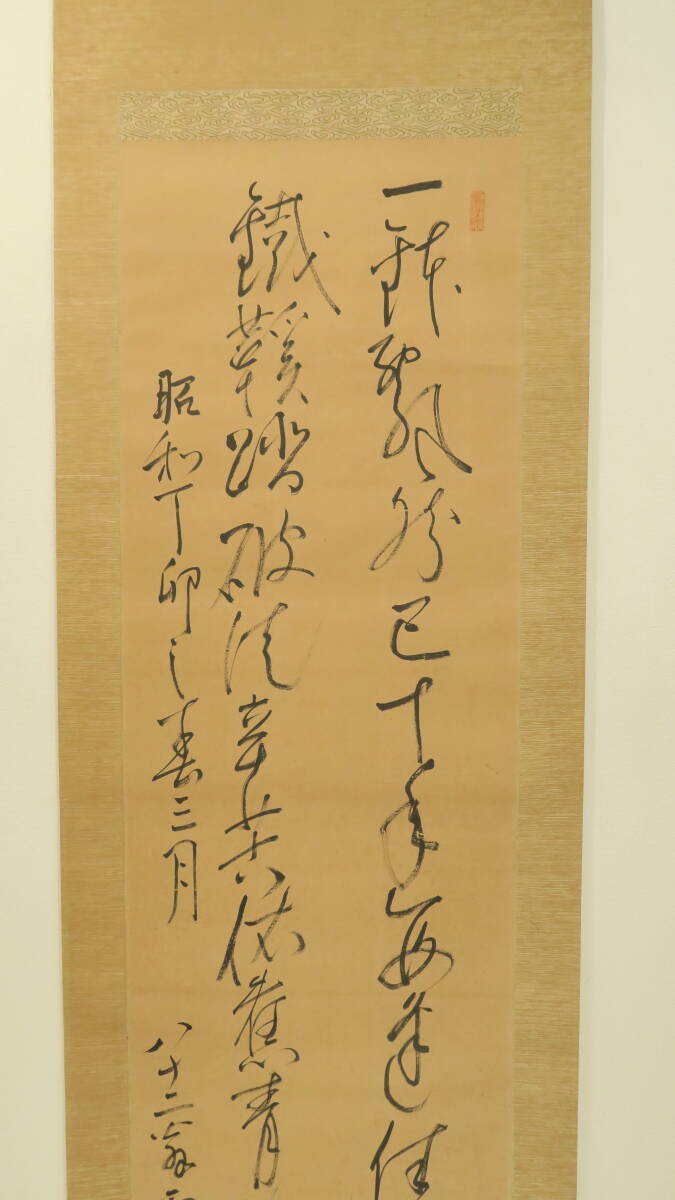 一鉢飄然已十年每逢佳
鐵鞋踏破法辛苦依舊青
昭和丁卯之春三月
八十二翁